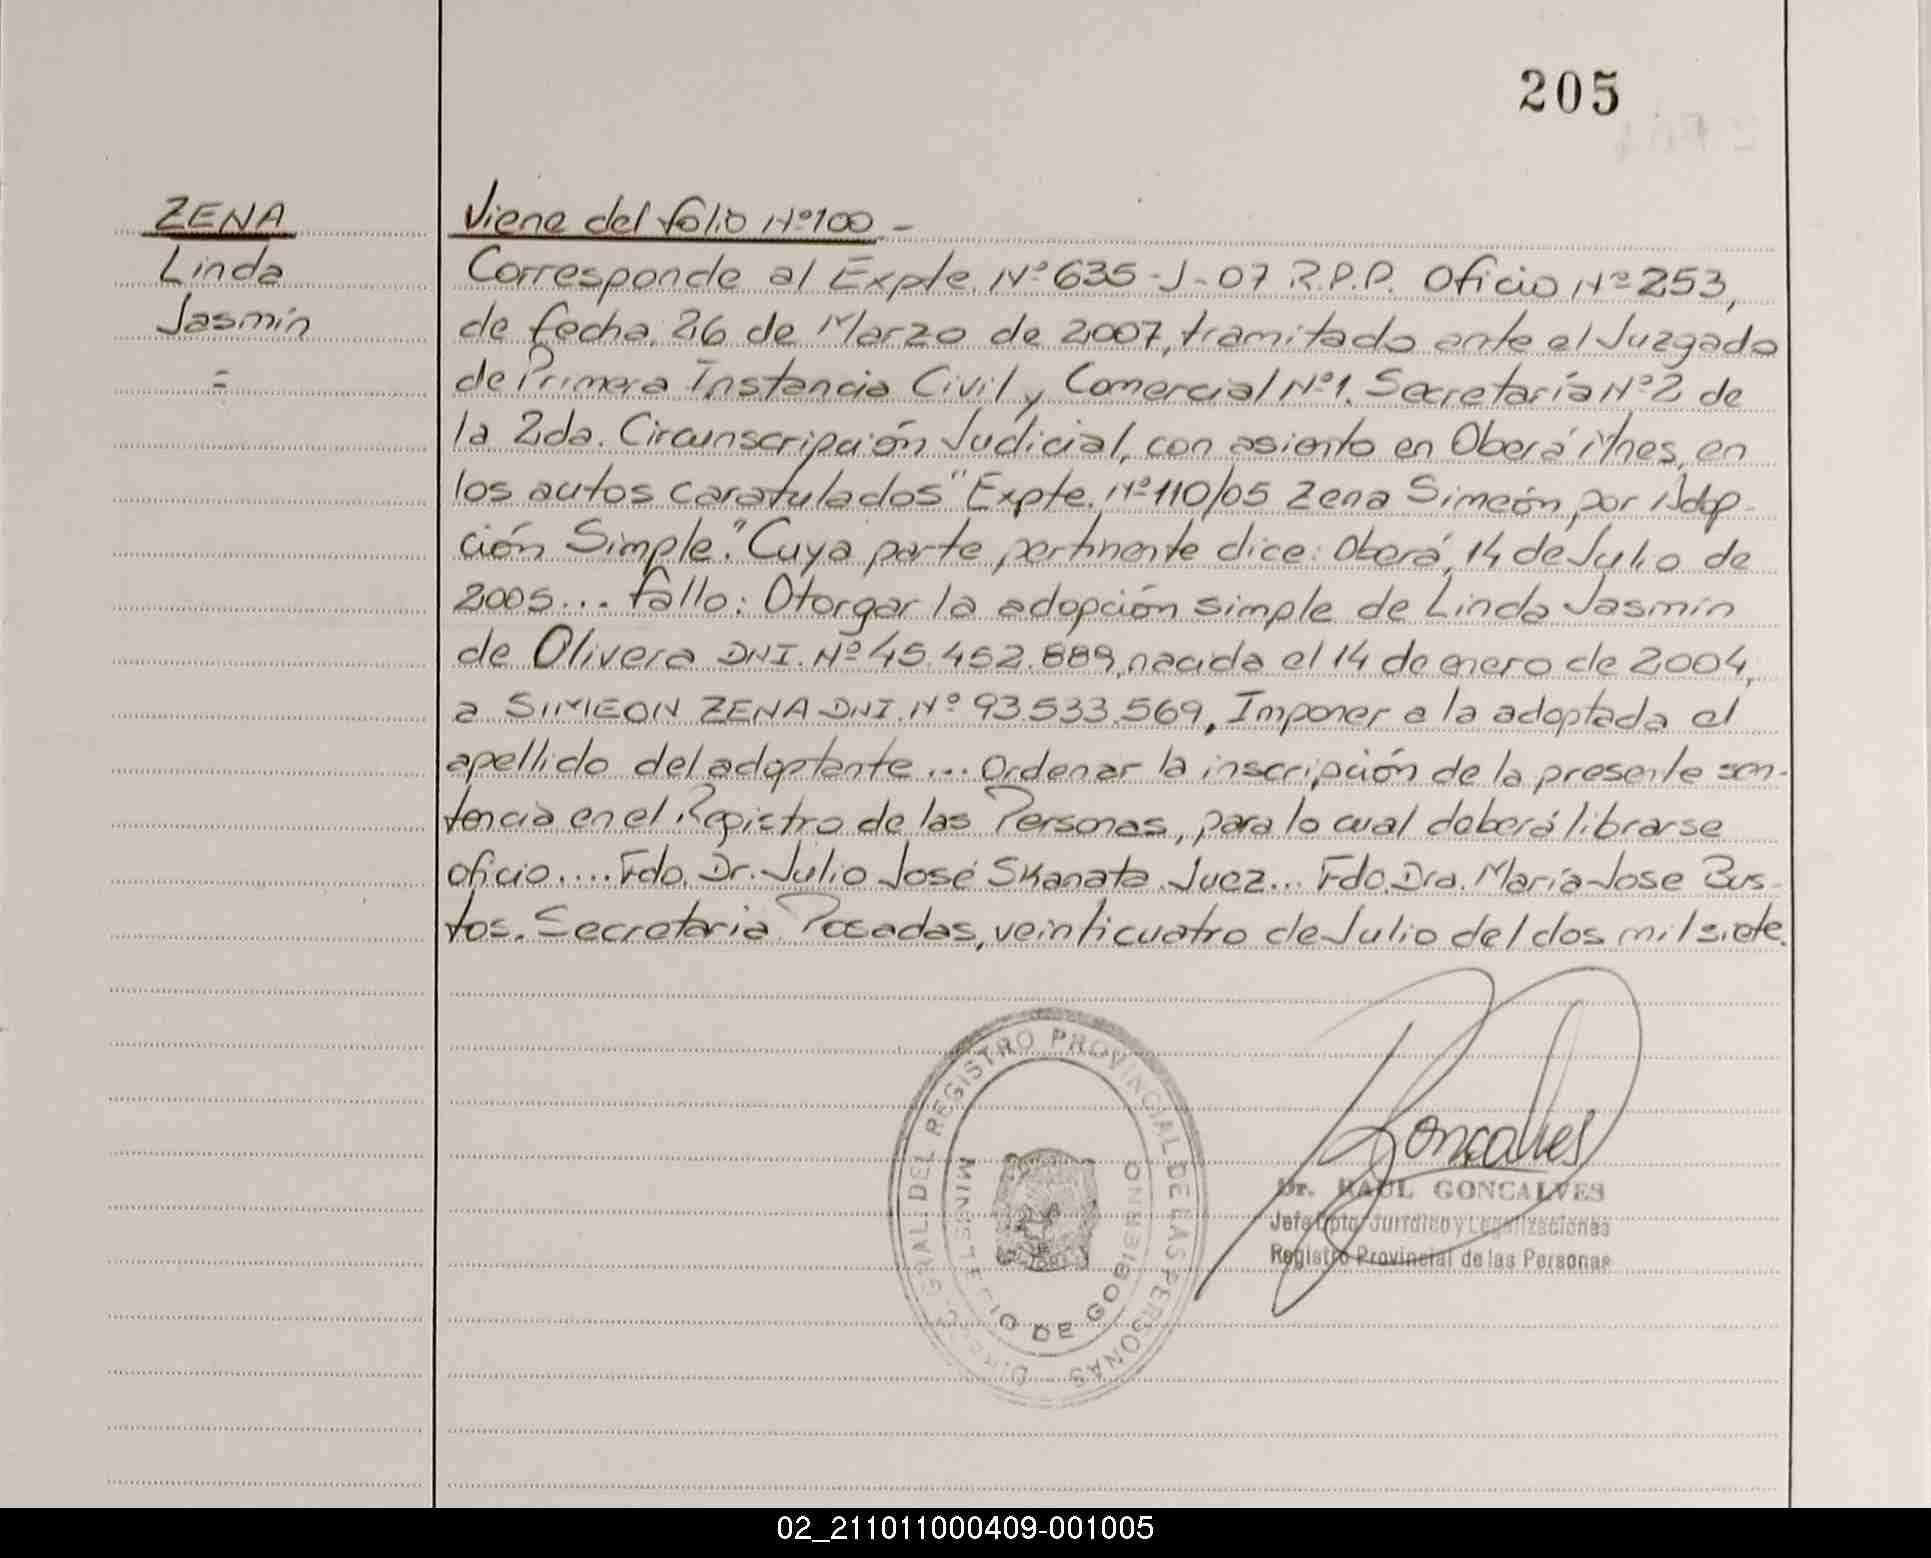 205
ZENA
Linda
Jasmín
=
Viene del folio Nº 100.-
Corresponde al Expte. Nº 635-J-07 R.P.P. Oficio Nº 253,
de fecha: 26 de Marzo de 2007, tramitado ante el Juzgado
de Primera Instancia Civil y Comercial Nº 1. Secretaría Nº 2 de
la 2da. Circunscripción Judicial, con asiento en Oberá Mnes, en
los autos caratulados "Expte. Nº 110/05 Zena Simeón por Adop-
ción Simple." Cuya parte pertinente dice: Oberá, 14 de Julio de
2005... Fallo: Otorgar la adopción simple de Linda Jasmín
de Olivera DNI. Nº 45.452.889, nacida el 14 de enero de 2004,
a SIMEON ZENA DNI. Nº 93.533.569, Imponer a la adoptada el
apellido del adoptante... Ordenar la inscripción de la presente sen-
tencia en el Registro de las Personas, para lo cual deberá librarse
oficio.... Fdo. Dr. Julio José Skanata. Juez... Fdo. Dra. María Jose Bus-
tos. Secretaria. Posadas, veinticuatro de Julio del dos mil siete.
DIREC. GRAL. DEL REGISTRO PROVINCIAL DE LAS PERSONAS
MINISTERIO DE GOBIERNO
Goncalves
Dr. RAUL GONCALVES
Jefe Dpto. Jurídico y Legalizaciones
Registro Provincial de las Personas
02_211011000409-001005